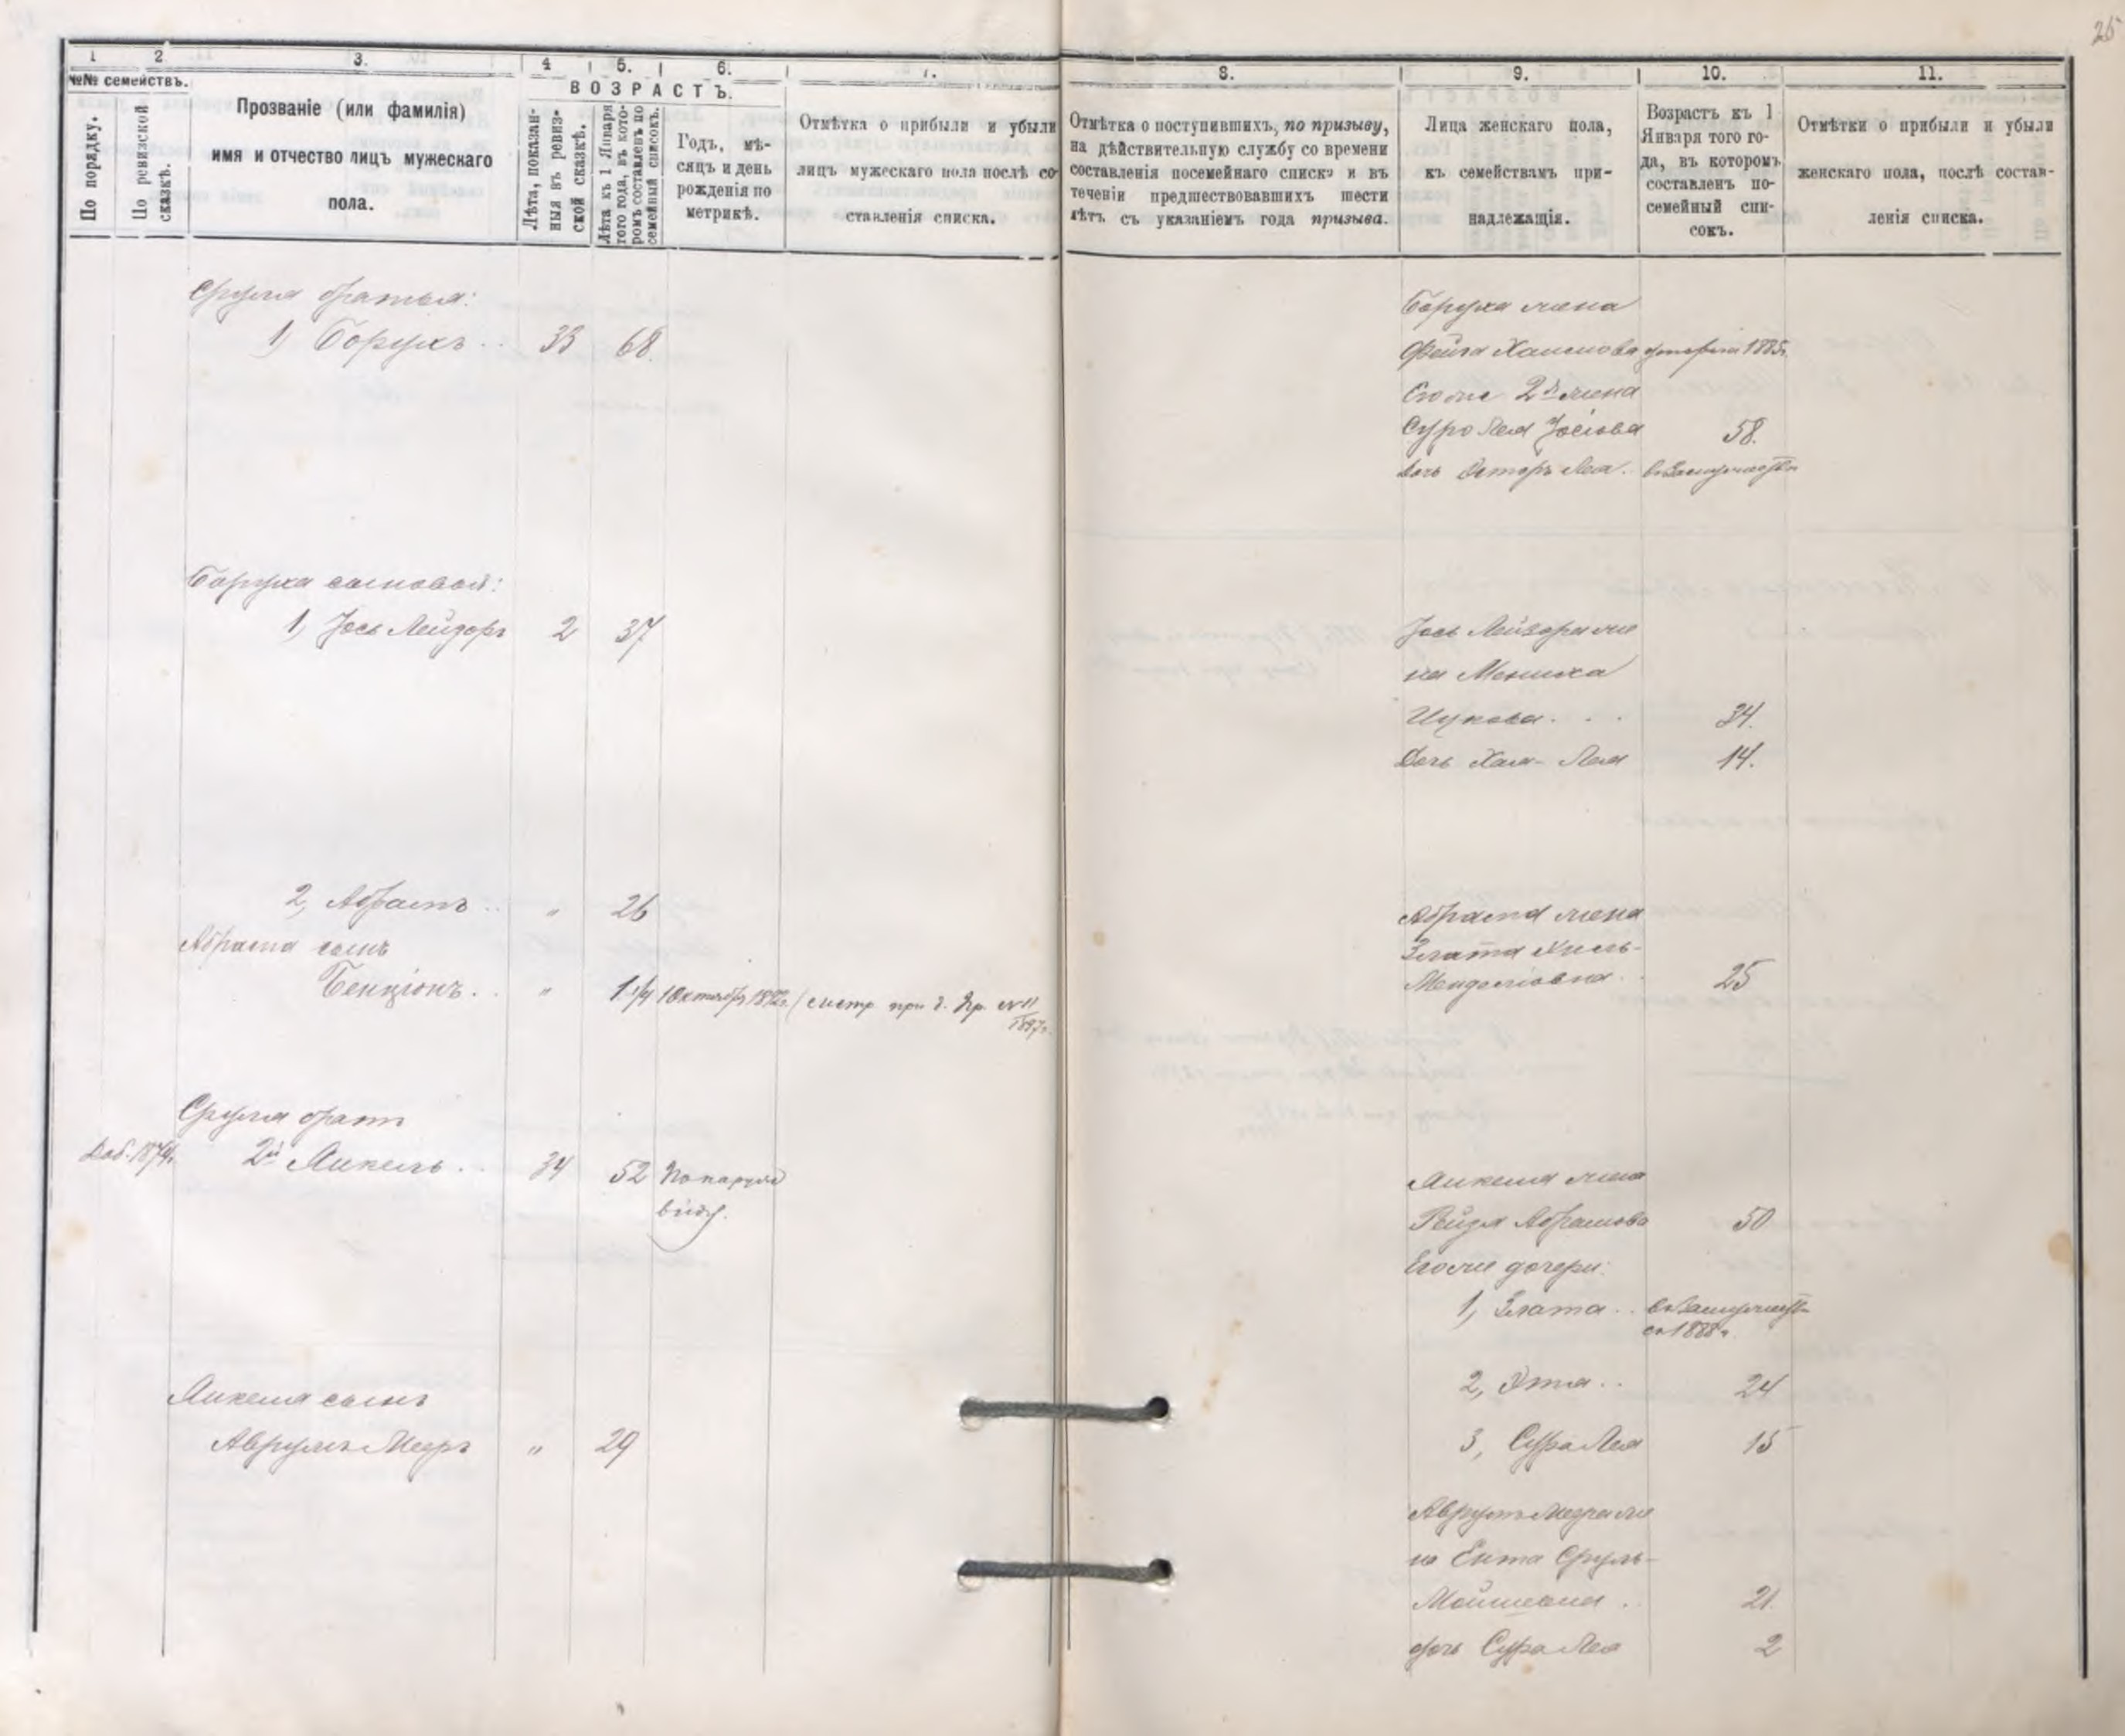 25
1
2
3.
4
5.
6.
7.
8.
9.
10.
11.
№№ семействъ.
По порядку.
По ревизской
сказкѣ.
Прозваніе (или фамилія)
имя и отчество лицъ мужескаго
пола.
ВОЗРАСТЪ.
Лѣта, показан-
ныя въ ревиз-
ской сказкѣ.
Лѣта къ 1 Января
того года, въ кото-
ромъ составленъ по
семейный списокъ.
Годъ, мѣ-
сяцъ и день
рожденія по
метрикѣ.
Отмѣтка о прибыли и убыли
лицъ мужескаго пола послѣ со-
ставленія списка.
Отмѣтка о поступившихъ, по призыву,
на дѣйствительную службу со времени
составленія посемейнаго списка и въ
теченіи предшествовавшихъ шести
лѣтъ съ указаніемъ года призыва.
Лица женскаго пола,
къ семействамъ при-
надлежащія.
Возрастъ къ 1
Января того го-
да, въ которомъ
составленъ по-
семейный спи-
сокъ.
Отмѣтки о прибыли и убыли
женскаго пола, послѣ состав-
ленія списка.
Сруля братья:
1) Борухъ .. 33 68.
Боруха жена
Фейга Хаимова 1885г.
Его же 2я жена
Суро Лея Іосіова 58.
дочь Эстеръ Лея. въ замужествѣ
Боруха сыновья:
1, Іось Лейзоръ 2 37
Іось Лейзора же
на Мениха
Ицкова . . . 34.
Дочь Хая-Лея 14.
2, Абрамъ .. " 26
Абрама сынъ
Бенціонъ .. " 1 1/4 1 Октябр 189 г. (метр. при д. Пр. №11
1897г.
Абрама жена
Злата Хиль-
Менделіовна .. 25
Сруля братъ
Доб. 1874г. 2й Янкель .. 34 52 По наруж
виду.
Янкеля жена
Рейзя Абрамова 50
Его же дочери:
1, Злата .. въ замужествѣ
съ 1888 г.
2, Этта .. 24
3, Сура Лея 15
Янкеля сынъ
Аврумъ Меэръ " 29
Аврумъ Меэра же
на Ента Сруль-
Мошкова . 21.
дочь Сура Лея 2